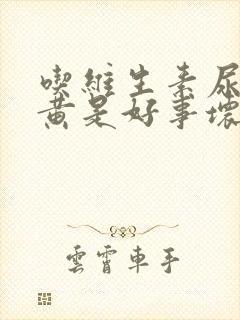 喫維生素尿
黃是好事壞
雲霄車手